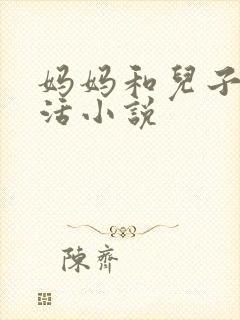 妈妈和兒子
活小説
陳齊